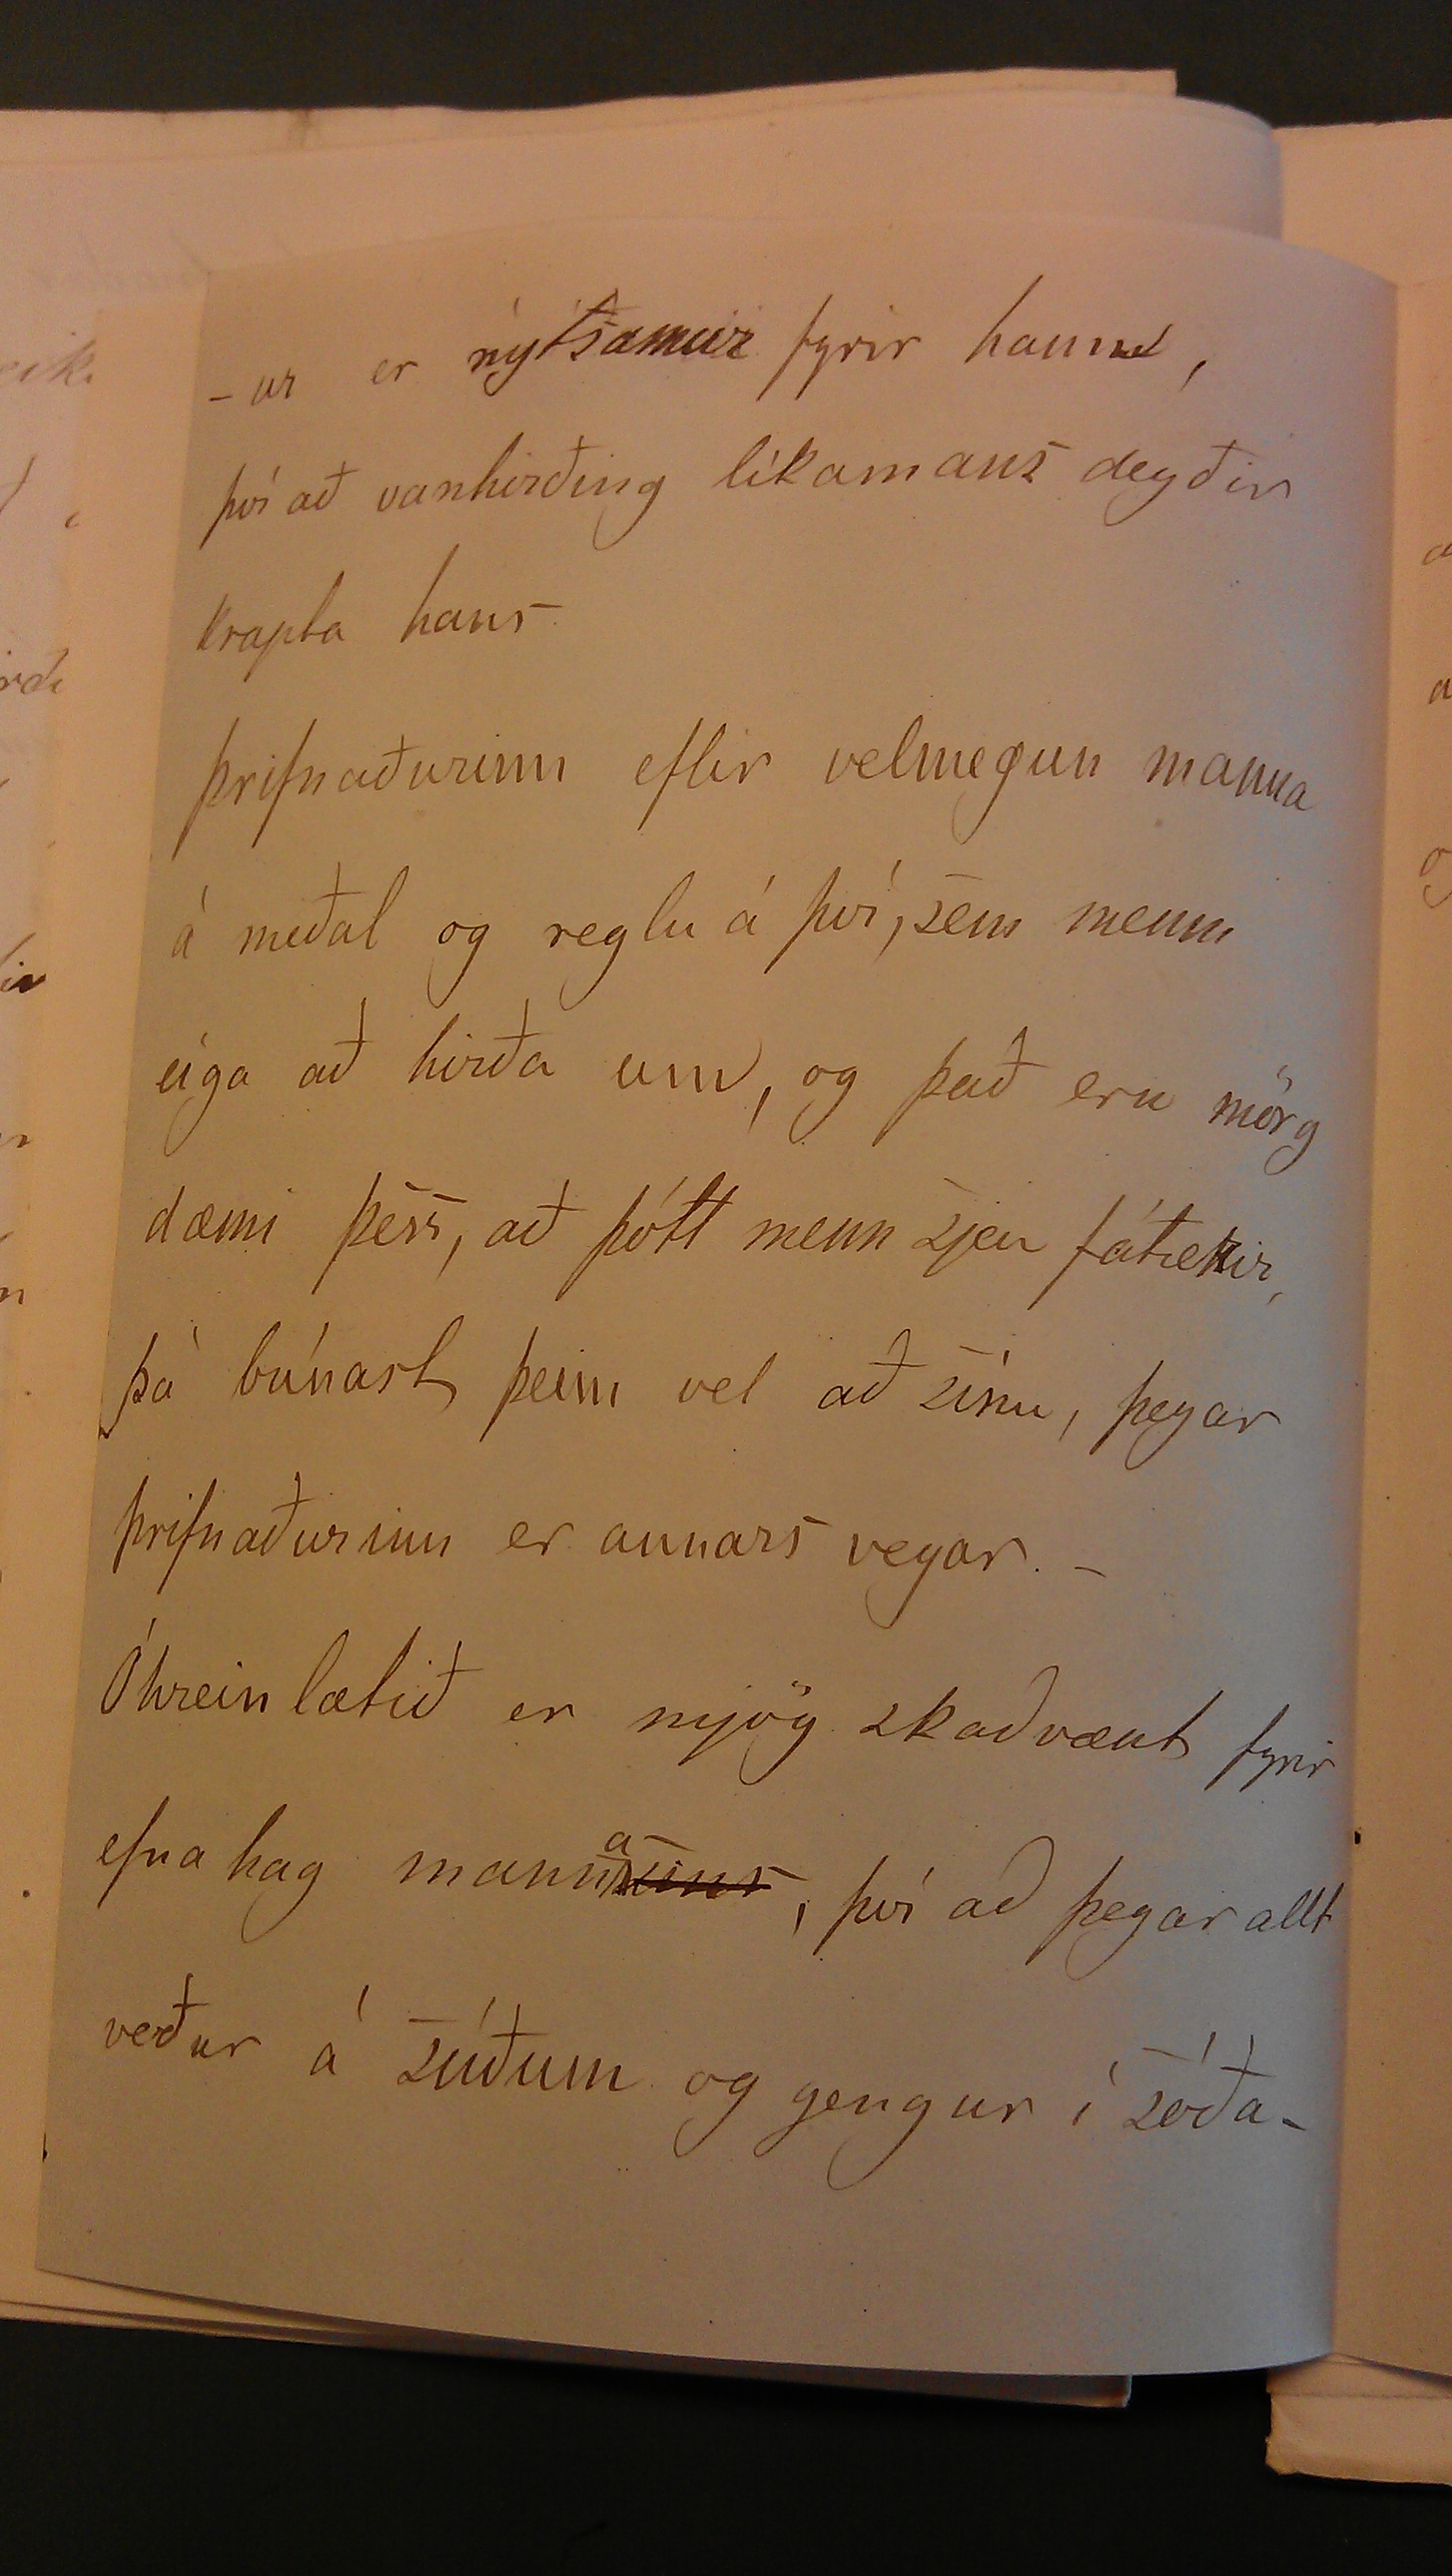 - ur er nýtsamur fyrir hann,
því að vanhirðing líkamans deyðir
krapta hans
Þrifnaðurinn eflir velmegun manna
á meðal og reglu á því, sem menn
eiga að hirða um, og það eru mörg
dæmi þess, að þótt menn sjeu fátækir,
þá búnast þeim vel að sínu, þegar
þrifnaðurinn er annars vegar. -
Óhreinlætið er mjög skaðvænt fyrir
efna hag manna, því að þegar allt
verður á súðum og gengur í sóða-